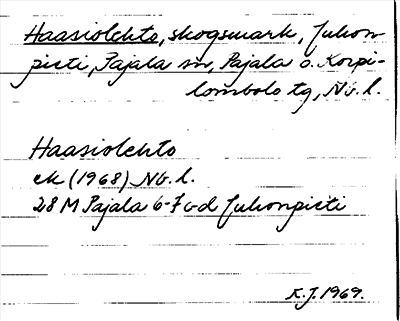 Haasiolehto, skogsmark, Juhon-
pieti, Pajala sn, Pajala o. Korpi-
lombolo tg, Nb. l.
Haasiolehto
ek (1968) Nb. l.
28 M Pajala 6-7 c-d Juhonpieti
K.J. 1969.